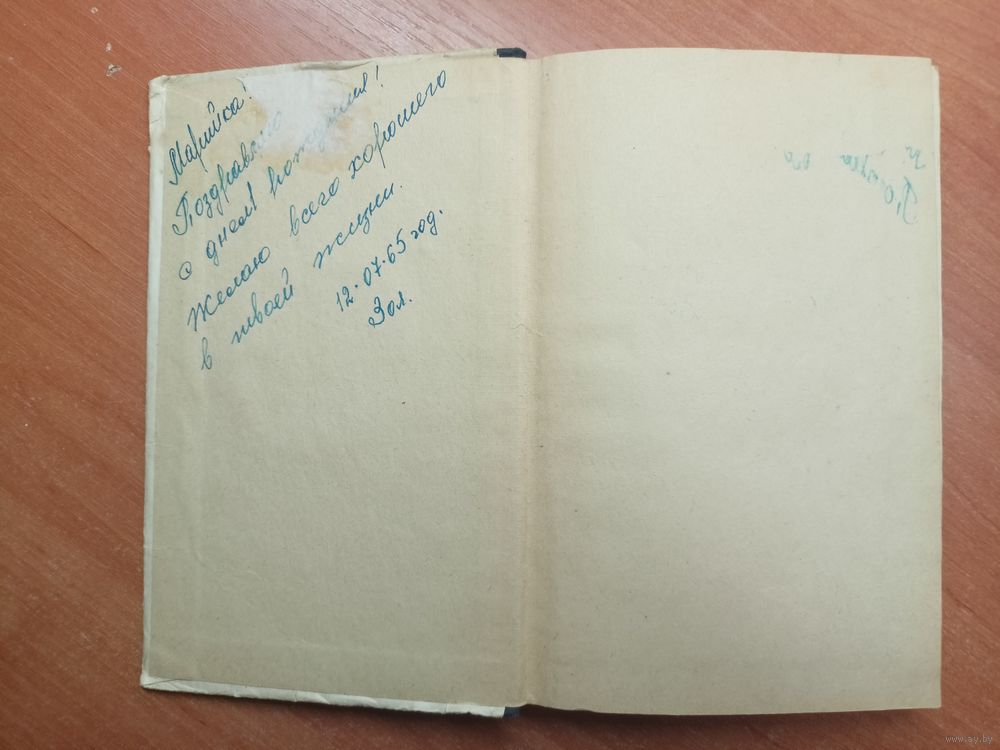 Марийка!
Поздравляю
с днем рождения!
Желаю всего хорошего
в твоей жизни.
12.07.65 год.
Зол.
www.ay.by